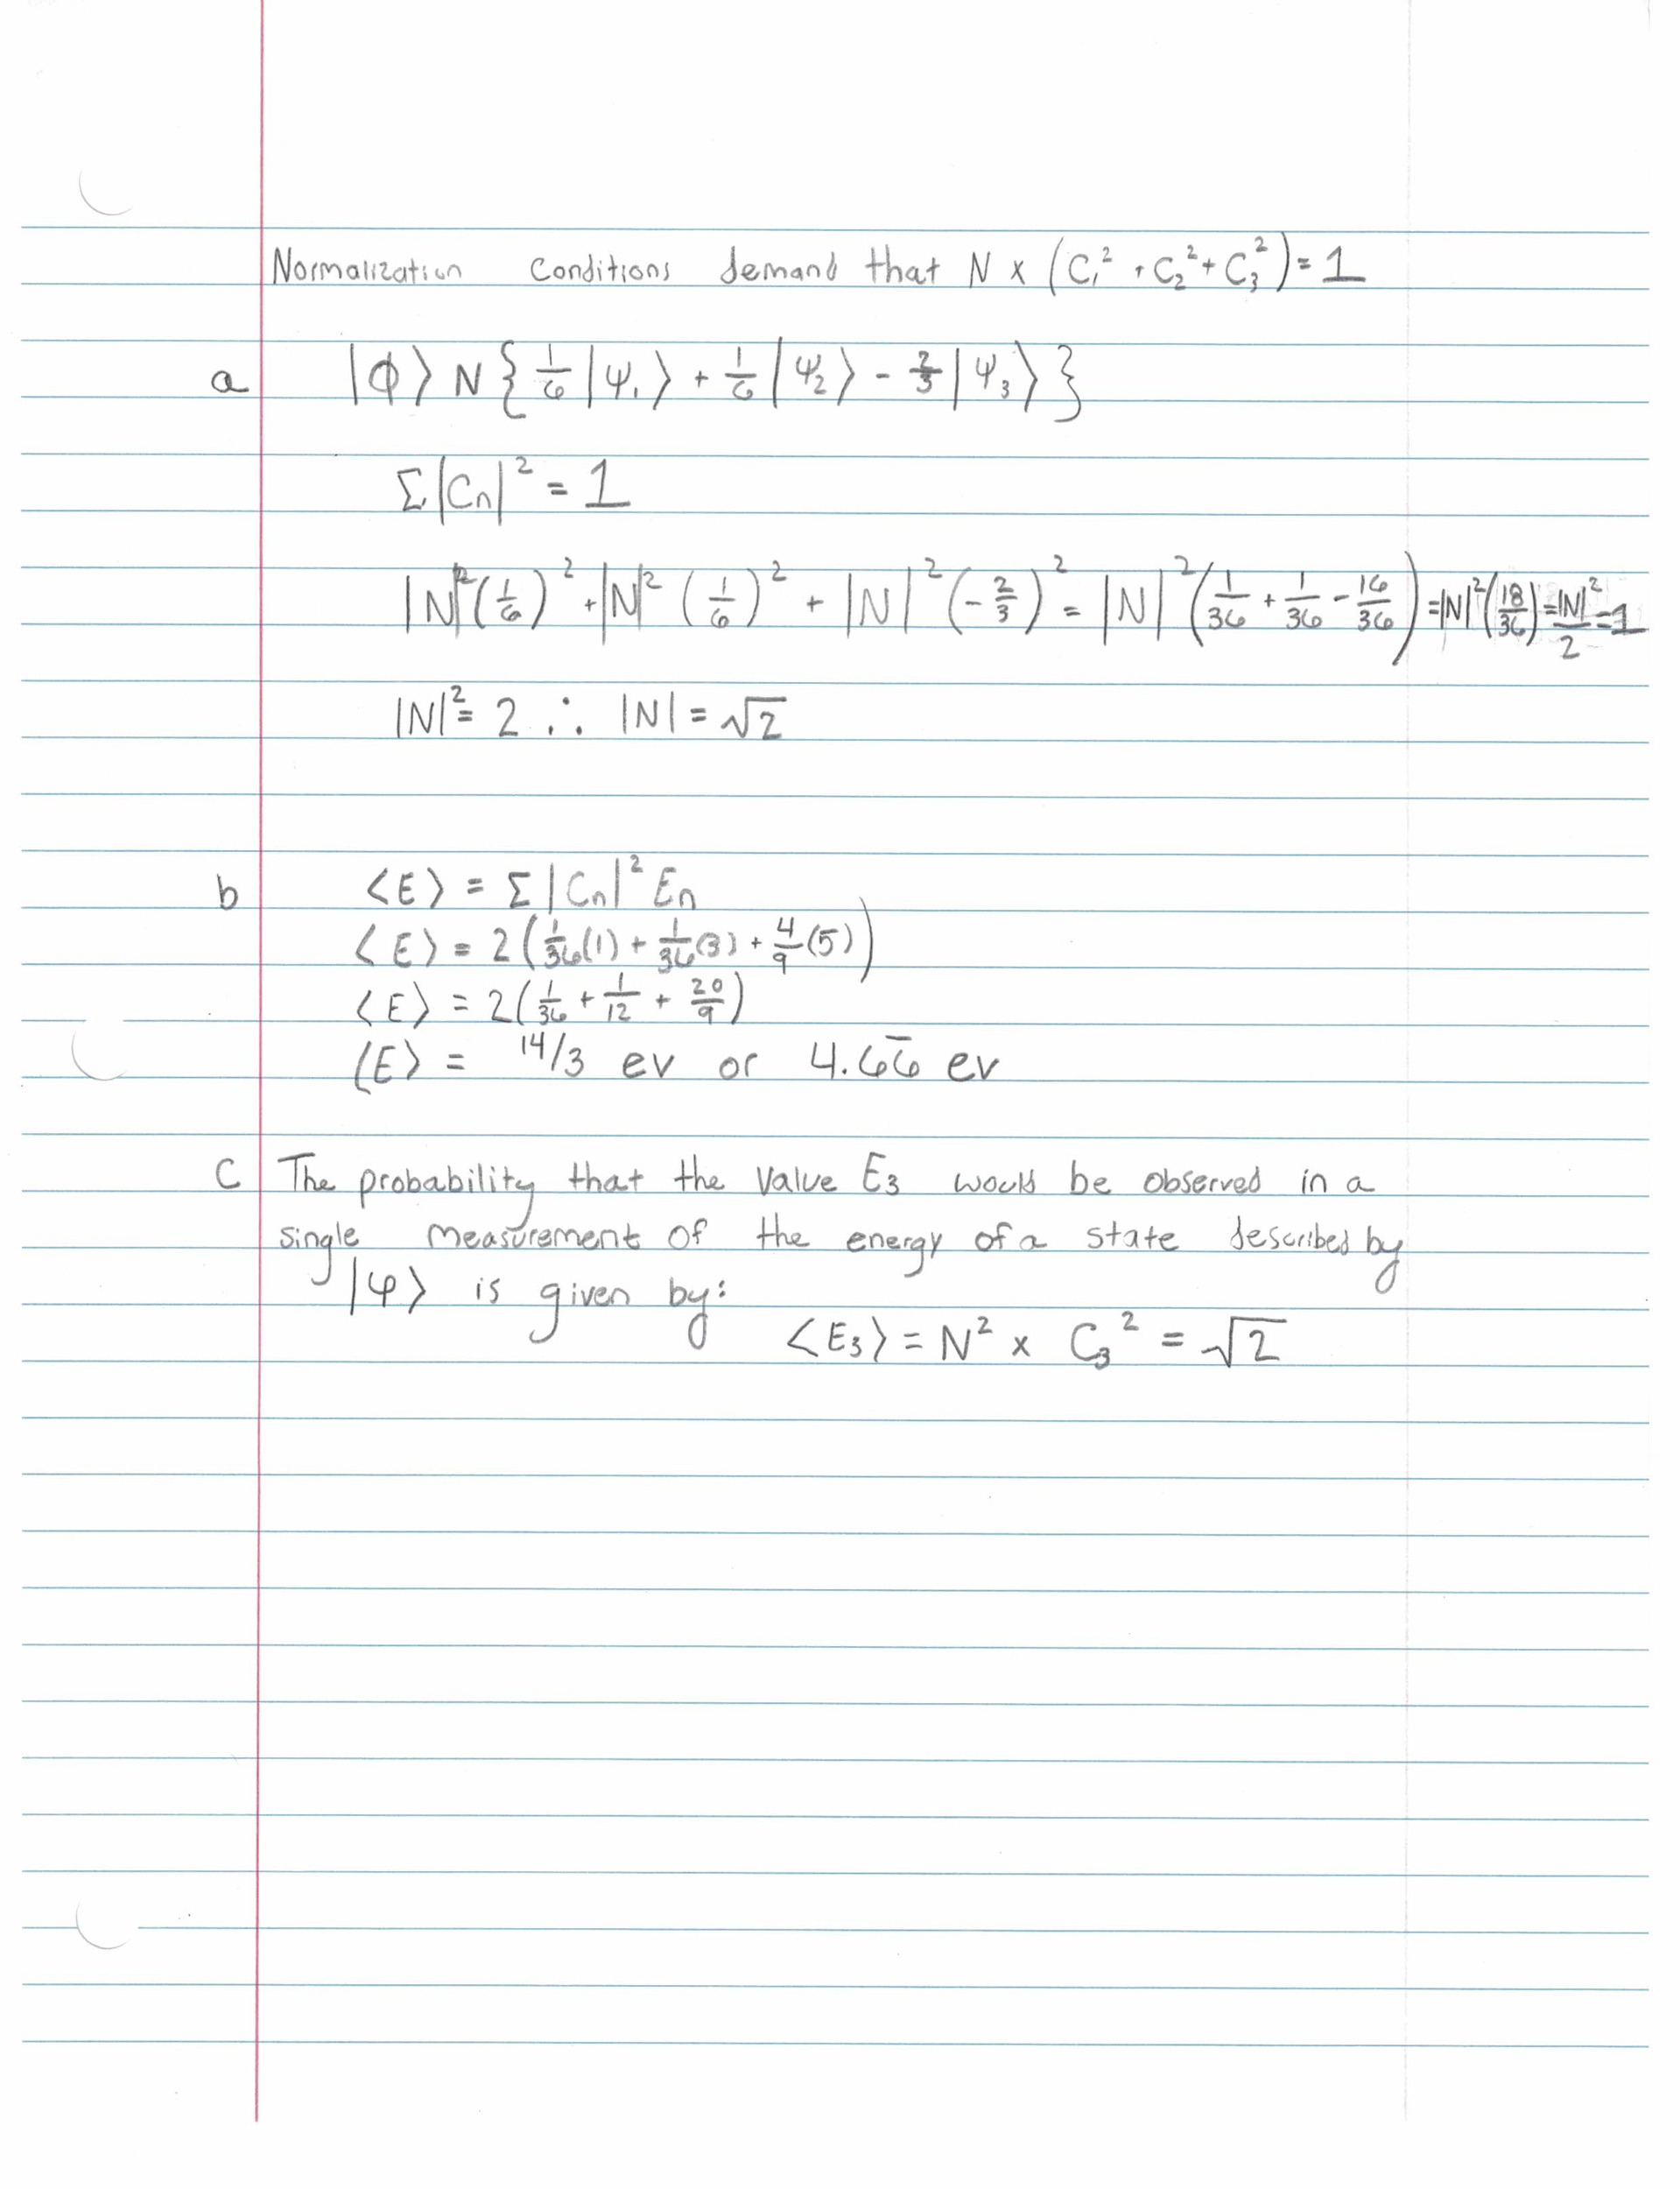 Normalization Conditions demand that N x (C₁² + C₂² + C₃²) = 1
a |ϕ⟩ N{1/6|ψ₁⟩ + 1/6|ψ₂⟩ - 2/3|ψ₃⟩}
Σ|Cn|² = 1
|N|²(1/6)² + |N|²(1/6)² + |N|²(-2/3)² = |N|²(1/36 + 1/36 - 16/36) = |N|²(18/36) = |N|²/2 = 1
|N|² = 2 ∴ |N| = √2
b ⟨E⟩ = Σ|Cn|² En
⟨E⟩ = 2(1/36(1) + 1/36(3) + 4/9(5))
⟨E⟩ = 2(1/36 + 1/12 + 20/9)
⟨E⟩ = 14/3 ev or 4.66̅ ev
C The probability that the value E₃ would be observed in a
single measurement of the energy of a state described by
|φ⟩ is given by:
⟨E₃⟩ = N² x C₃² = √2